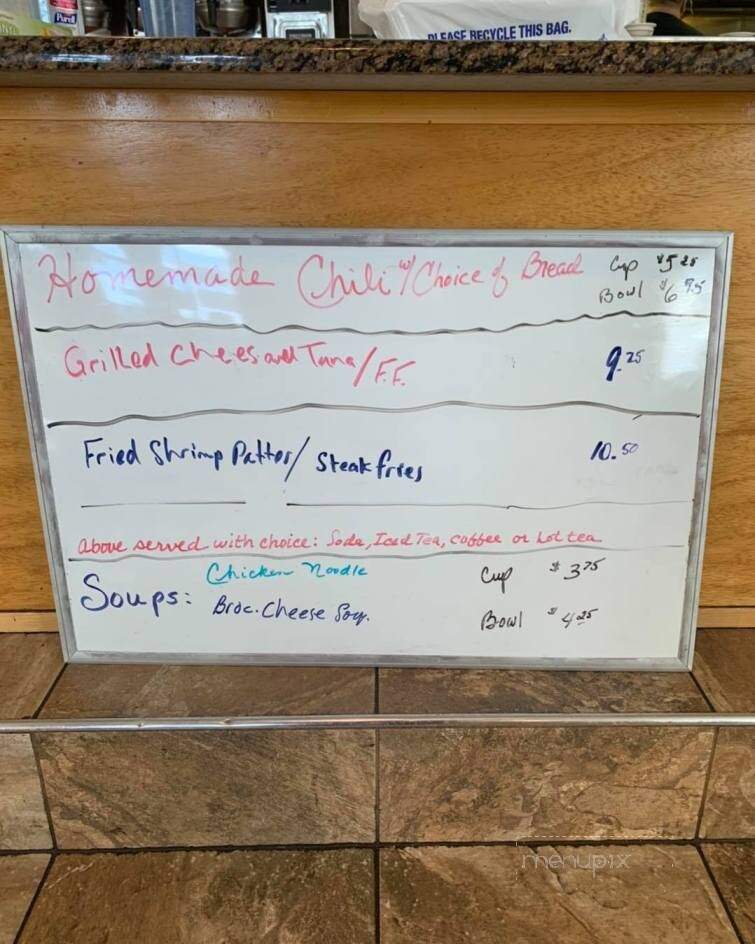 Purell
PLEASE RECYCLE THIS BAG.
Homemade Chili w/ Choice of Bread Cup $5.25
Bowl $6.95
Grilled Chees and Tuna/F.F. 9.25
Fried Shrimp Patter/ Steak fries 10.50
above served with choice: Soda, Iced Tea, coffee or hot tea
Chicken Noodle Cup $3.75
Soups: Broc. Cheese Soup. Bowl $4.25
menupix